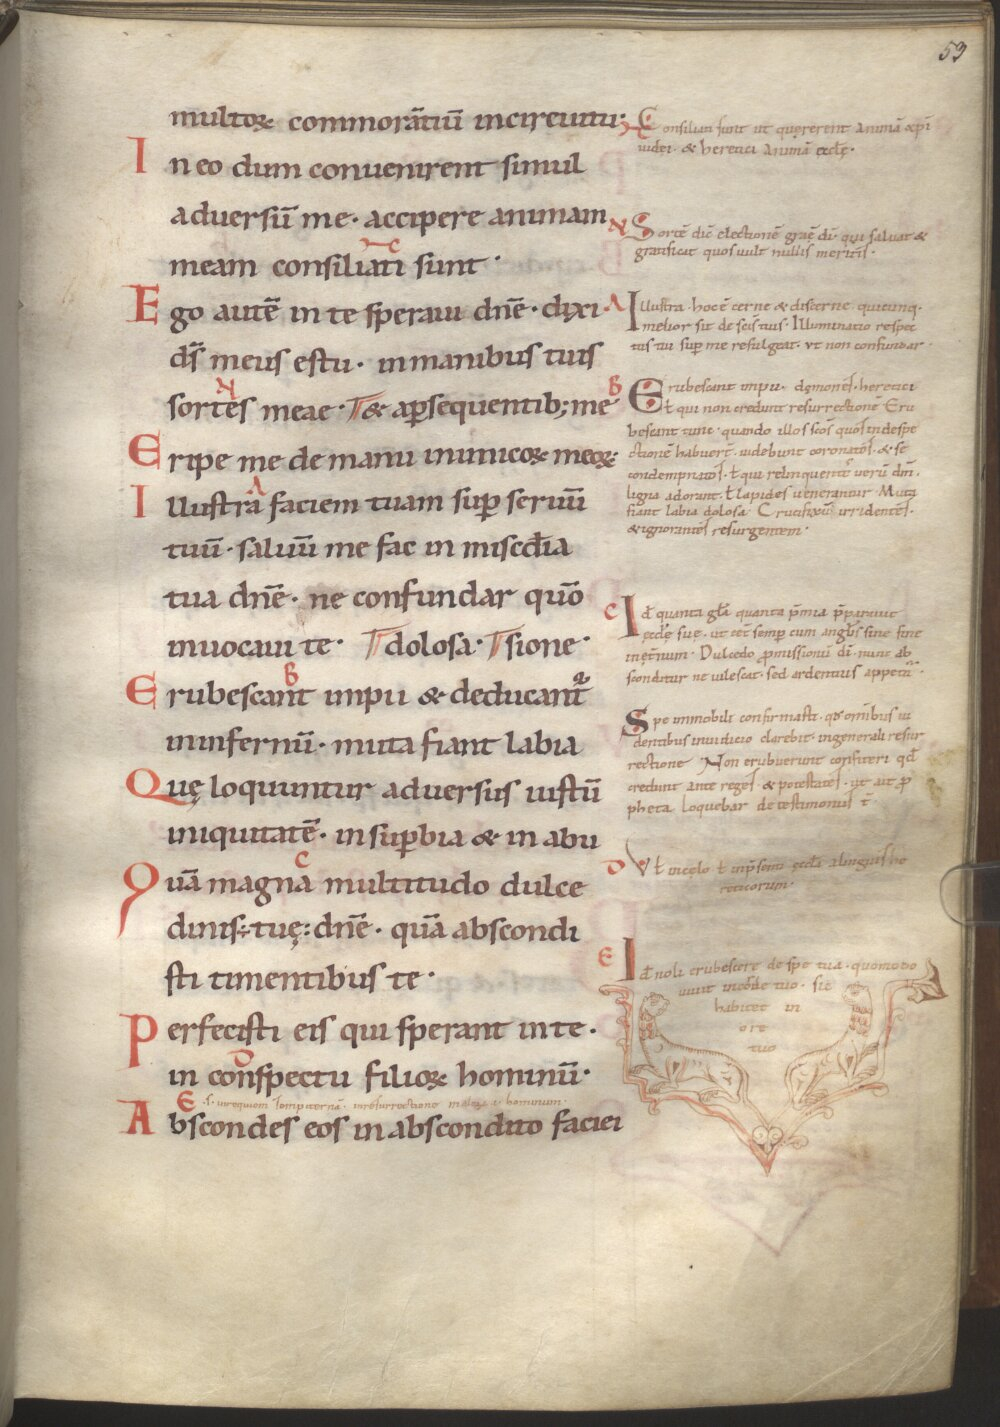 59
multoꝝ commorātiū incircuitu·
In eo dum convenirent simul
adversū me· accipere animam
meam consiliati sunt·
Ego autē in te speravi dn̄e· dixi·
ds̄ meus es tu· in manibus tuis
sortes meae· & a ꝑsequentib; me
Eripe me de manu inimicoꝝ meoꝝ·
Illustra faciem tuam suꝑ servū
tuū· salvū me fac in misc̄dia
tua dn̄e· ne confundar quō
invocavi te· dolosa· sione·
Erubescant impii & deducant᷑
in infernū· muta fiant labia
Quę loquuntur adversus iustū
iniquitatē· in suꝑbia & in abu
Quā magna multitudo dulce
dinis tuę dn̄e· quā abscondi
sti timentibus te·
Perfecisti eis qui sperant in te·
in conspectu filioꝝ hominū·
E ·s· in requiem sempiternā· in resurrectione hominum·
Abscondes eos in abscondito faciei
Consiliati sunt ut quęrerent animā xp̄i
iudei· & heretici animā eccl̄ę·
N Sortē dic̄ electionē graē dī· qui salvat &
gratificat quos vult nullis meritis·
A Illustra· hoc ē cerne & discerne· quicunq·
melior sit de sc̄is tuis· Illuminatio respec
tus tui suꝑ me refulgeat· ut non confundar·
B Erubescant impii· dęmones· heretici
ł qui non credunt resurrectionē Eru
bescant tunc· quando illos sc̄os quos in despe
ctionē habuer̄· videbunt coronatos· & se
condempnatos· ł qui relinquentes verū dm̄·
ligna adorant· ł lapides venerantur· Muta
fiant labia dolosa· Crucifixū irridentes·
& ignorantes resurgentem·
C Id̄ quanta gła quanta p̄mia p̄paravit
ęccłę suę· ut cēt semꝑ cum angłis sine fine
in ęt̄num· Dulcedo ꝓmissionū dī· nunc ab
sconditur ne vilescat· sed ardentius appetat᷑·
Spe immobili confirmasti· qđ omnibus vi
dentibus in iudicio clarebit· in generali resur
rectione· Non erubuerunt confiteri qđ
credunt ante reges· & potestates· ut ait ꝓ
pheta loquebar de testimoniis t̄
D Vł in cęlo ł in p̄senti ęccła a linguis he
reticorum·
E Id̄ noli erubescere de spe tua· quomodo
vivit in corde tuo· sic
habitet in
ore
tuo